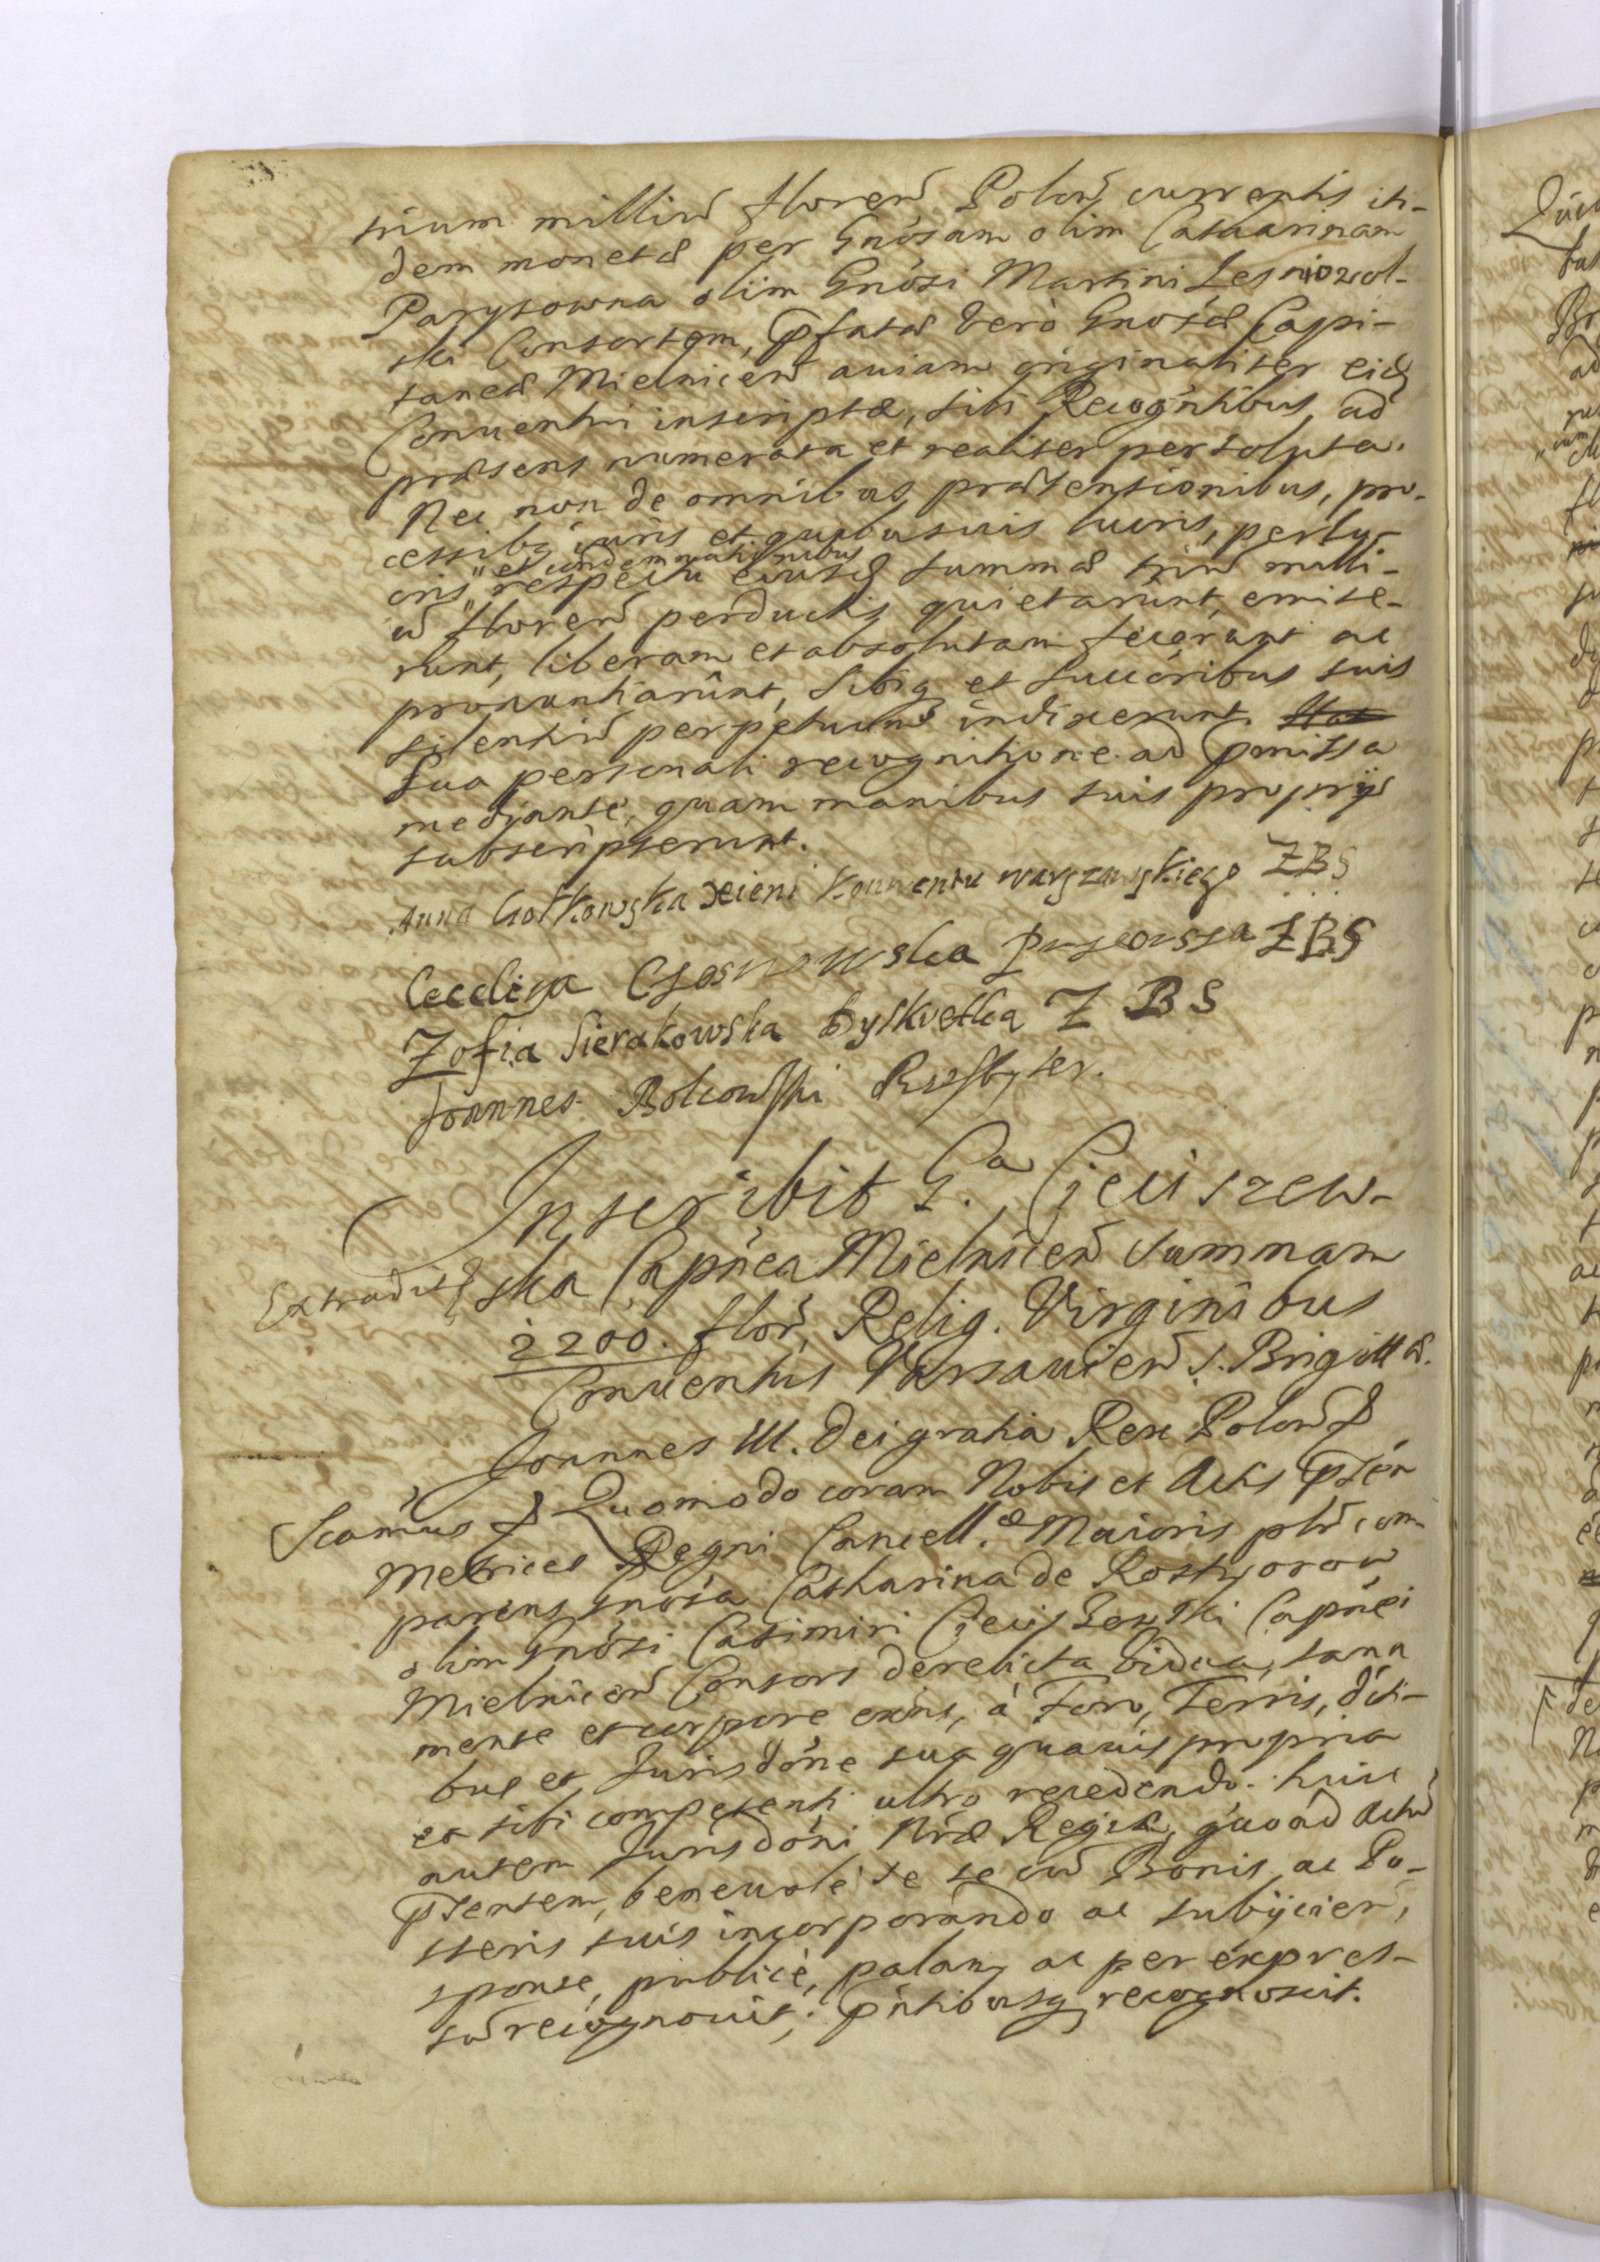 trium milliũ florenũ Polon̄ currentis iti-
dem monetæ per Gnôsam olim Catharinam
Parysowna olim Gnôsi Martini Lesniowol-
ski Consortem, p̄fatæ verò Gnôsæ Capi-
taneæ Mielnicen̄ auiam originaliter eidꝫ
Conuentui inscriptæ, sibi Recogñtibus ad
præsens numerata et realiter persoluta.
Nec non de omnibus prætensionibus, pro-
cessibꝫ iuris et quibusuis lucris, perlu-
cris " respectu eiusdꝫ summæ triũ milli-
"et condemnationibus
ũ florenũ perductis quietarunt, emise-
runt, liberam et absolutam fecerunt ac
pronuntiarunt, sibiqꝫ et succoribus suis
silentiũ perpetuum indixerunt.
Sua personali recognitione ad p̄missa
mediante, quam manibus suis proprijs
subscripserunt.
Anna Gotkowska xieni Konwentu warszawskiego Z B S
Cecelija Czosnowska Przeorssa Z B S
Zofia Sierakowska Dyskretka Z B S
Joannes Bolcowski Presbyter.
Inscribit G.a Cieciszew-
Extradit. ska Capñea Mielnicen̄ summam
2200. flor̄, Relig. Virginibus
Conuentus Varsauien̄ S. Brigittæ.
Joannes III. Dei gratia Rex Polon̄ &
Scamus & Quomodo coram Nobis et Actis p̄sén
Metrices Regni Cancell.æ Maioris plr̄ com
parens Gnôsa Catharina de Kostworow
olim Gnôsi Casimiri Cieciszewski Capñei
Mielnicen̄ Consors derelicta vidua, sana
mente et corpore exñs, à Foro, Terris, d́iti-
bus et Jurisdône sua quauis propria
et sibi competenti ultro recedendo. huic
autem Jurisdôni Nr̄æ Regiæ, quoad actũ
p̄sentem, beneuolè se se cũ Bonis ac Po-
steris suis incorporando ac subijcien̄,
sponte, publicè, palam ac per expres-
sũ recognouit, p̄ntibusqꝫ recognoscit.